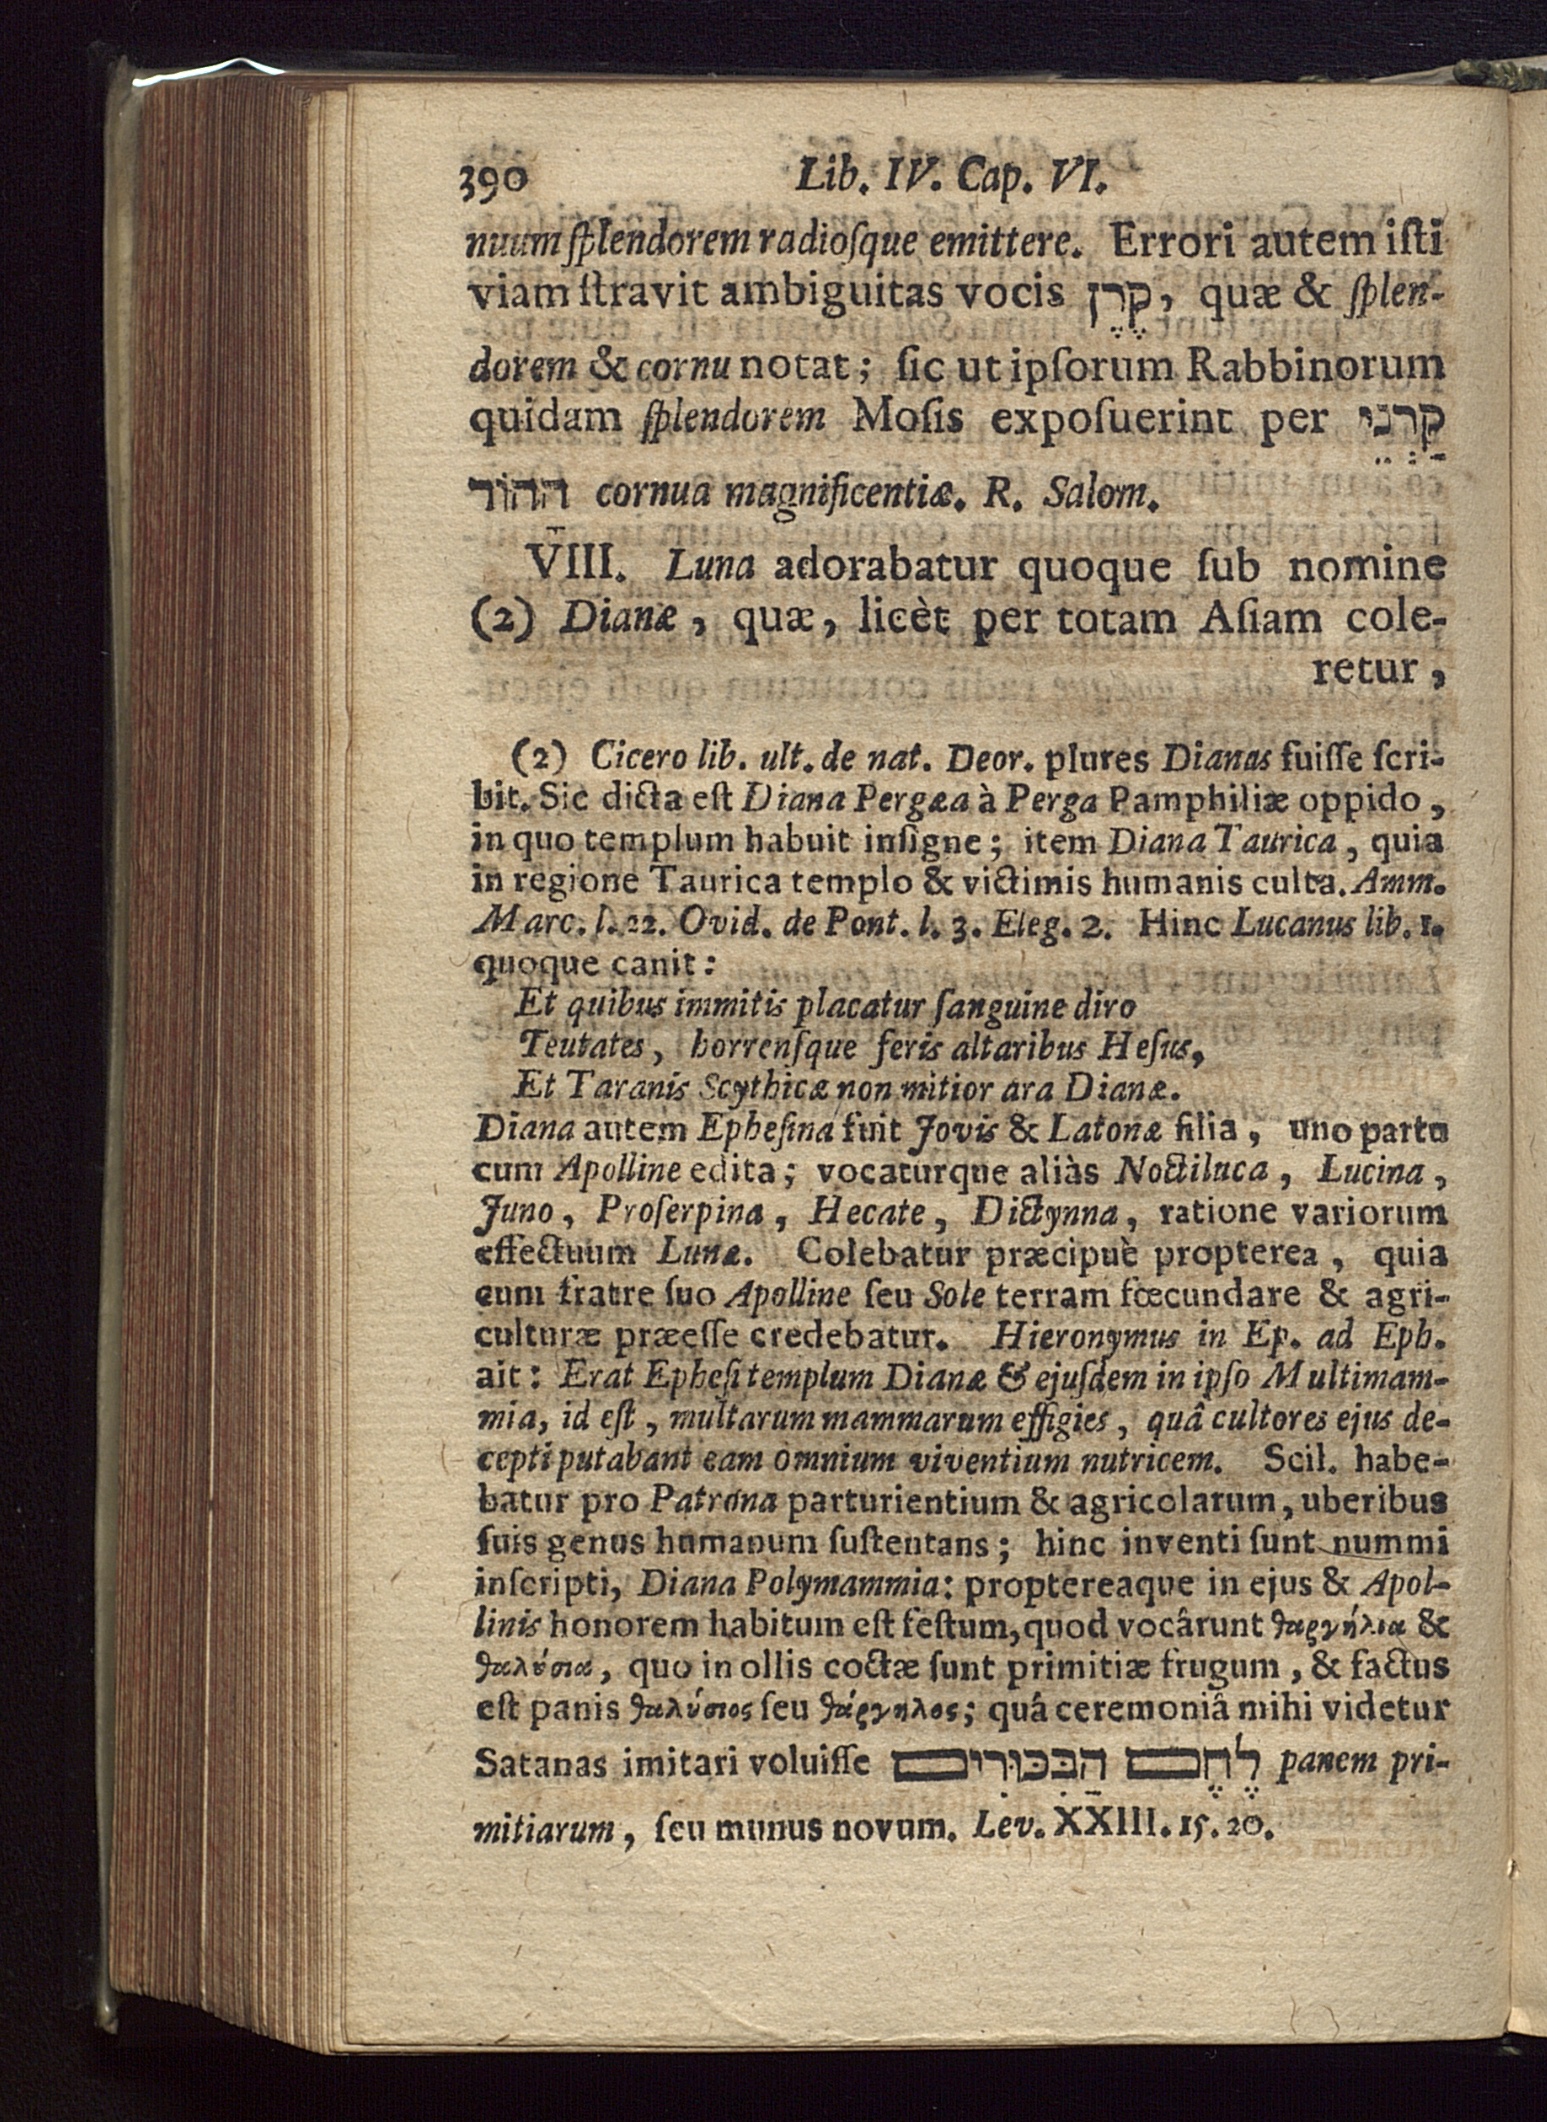 390 Lib. IV. Cap. VI.
nuum ſplendorem radioſque emittere. Errori autem iſti
viam ſtravit ambiguitas vocis קֶרֶן, quæ & ſplen-
dorem & cornu notat; ſic ut ipſorum Rabbinorum
quidam ſplendorem Moſis expoſuerint per קַרְנֵי
הַהוֹד cornua magnificentiæ. R. Salom.
VIII. Luna adorabatur quoque ſub nomine
(2) Dianæ, quæ, licèt per totam Aſiam cole-
retur,
(2) Cicero lib. ult. de nat. Deor. plures Dianas fuiſſe ſcri-
bit. Sic dicta eſt Diana Pergæa à Perga Pamphiliæ oppido,
in quo templum habuit inſigne; item Diana Taurica, quia
in regione Taurica templo & victimis humanis culta. Amm.
Marc. l. 22. Ovid. de Pont. l. 3. Eleg. 2. Hinc Lucanus lib. 1.
quoque canit:
Et quibus immitis placatur ſanguine diro
Teutates, horrenſque feris altaribus Heſus,
Et Taranis Scythicæ non mitior ara Dianæ.
Diana autem Epheſina fuit Jovis & Latonæ filia, uno partu
cum Apolline edita; vocaturque aliàs Noctiluca, Lucina,
Juno, Proſerpina, Hecate, Dictynna, ratione variorum
effectuum Lunæ. Colebatur præcipuè propterea, quia
cum fratre ſuo Apolline ſeu Sole terram fœcundare & agri-
culturæ præeſſe credebatur. Hieronymus in Ep. ad Eph.
ait: Erat Epheſi templum Dianæ & ejuſdem in ipſo Multimam-
mia, id eſt, multarum mammarum effigies, quâ cultores ejus de-
cepti putabant eam omnium viventium nutricem. Scil. habe-
batur pro Patrona parturientium & agricolarum, uberibus
ſuis genus humanum ſuſtentans; hinc inventi ſunt nummi
inſcripti, Diana Polymammia: proptereaque in ejus & Apol-
linis honorem habitum eſt feſtum, quod vocârunt ϑαργήλια &
ϑαλύσια, quo in ollis coctæ ſunt primitiæ frugum, & factus
eſt panis ϑαλύσιος ſeu ϑάργηλος; quâ ceremoniâ mihi videtur
Satanas imitari voluiſſe לֶחֶם הַבִּכּוּרִים panem pri-
mitiarum, ſeu munus novum. Lev. XXIII. 15. 20.